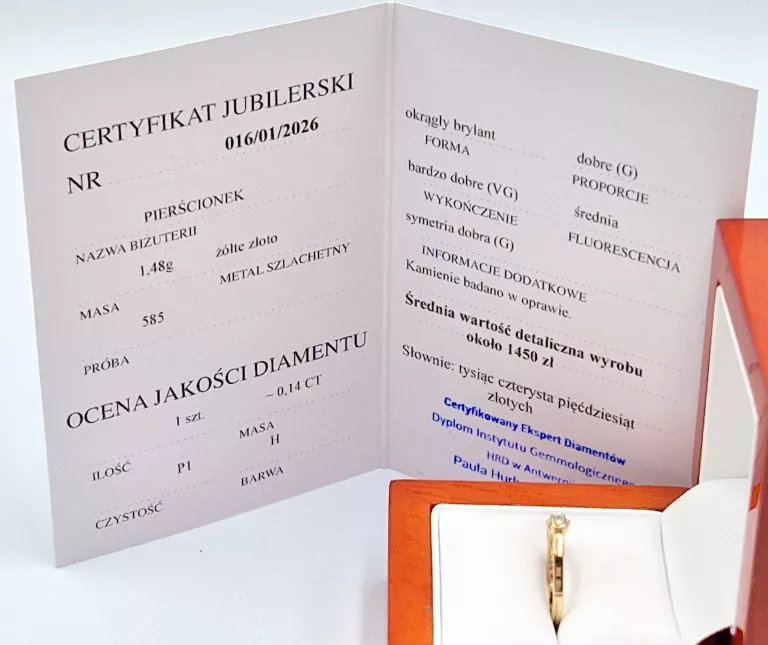 CERTYFIKAT JUBILERSKI
NR 016/01/2026
PIERŚCIONEK
NAZWA BIŻUTERII
1,48g żółte złoto
MASA METAL SZLACHETNY
585
PRÓBA
OCENA JAKOŚCI DIAMENTU
1 szt. ~ 0,14 CT
ILOŚĆ MASA
P1 H
CZYSTOŚĆ BARWA
okrągły brylant dobre (G)
FORMA PROPORCJE
bardzo dobre (VG) średnia
WYKOŃCZENIE FLUORESCENCJA
symetria dobra (G)
INFORMACJE DODATKOWE
Kamienie badano w oprawie.
Średnia wartość detaliczna wyrobu
około 1450 zł
Słownie: tysiąc czterysta pięćdziesiąt
złotych
Certyfikowany Ekspert Diamentów
Dyplom Instytutu Gemmologicznego
HRD w
Paula